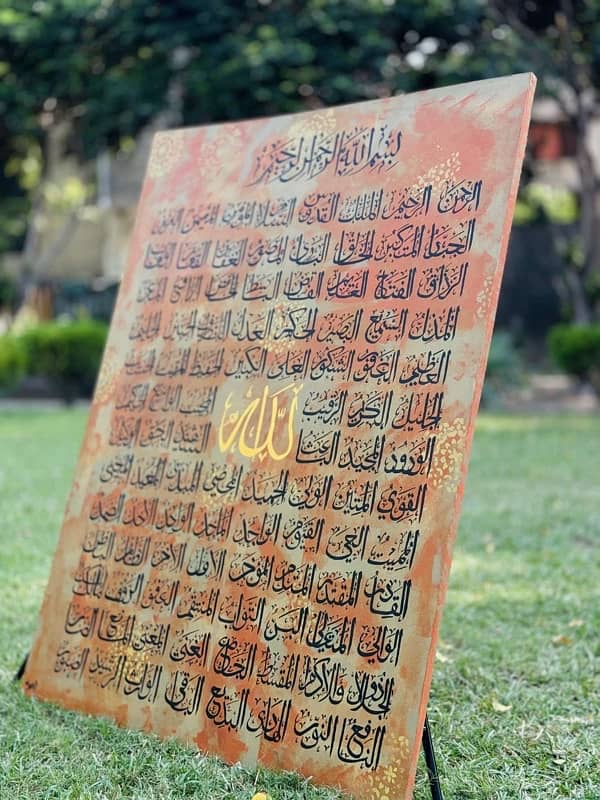 بسم الله الرحمن الرحيم
الرحمن الرحيم الملك القدوس السلام المؤمن المهيمن العزيز
الجبار المتكبر الخالق البارئ المصور الغفار القهار الوهاب
الرزاق الفتاح العليم القابض الباسط الخافض الرافع المعز
المذل السميع البصير الحكم العدل اللطيف الخبير الحليم
العظيم الغفور الشكور العلي الكبير الحفيظ المقيت الحسيب
الجليل الكريم الرقيب الله المجيب الواسع الحكيم
الودود المجيد الباعث الشهيد الحق الوكيل
القوي المتين الولي الحميد المحصي المبدئ المعيد المحيي
المميت الحي القيوم الواجد الماجد الواحد الاحد الصمد
القادر المقتدر المقدم المؤخر الاول الآخر الظاهر الباطن
الوالي المتعالي البر التواب المنتقم العفو الرؤف مالك الملك
ذوالجلال والاكرام المقسط الجامع الغني المغني المانع الضار
النافع النور الهادي البديع الباقي الوارث الرشيد الصبور